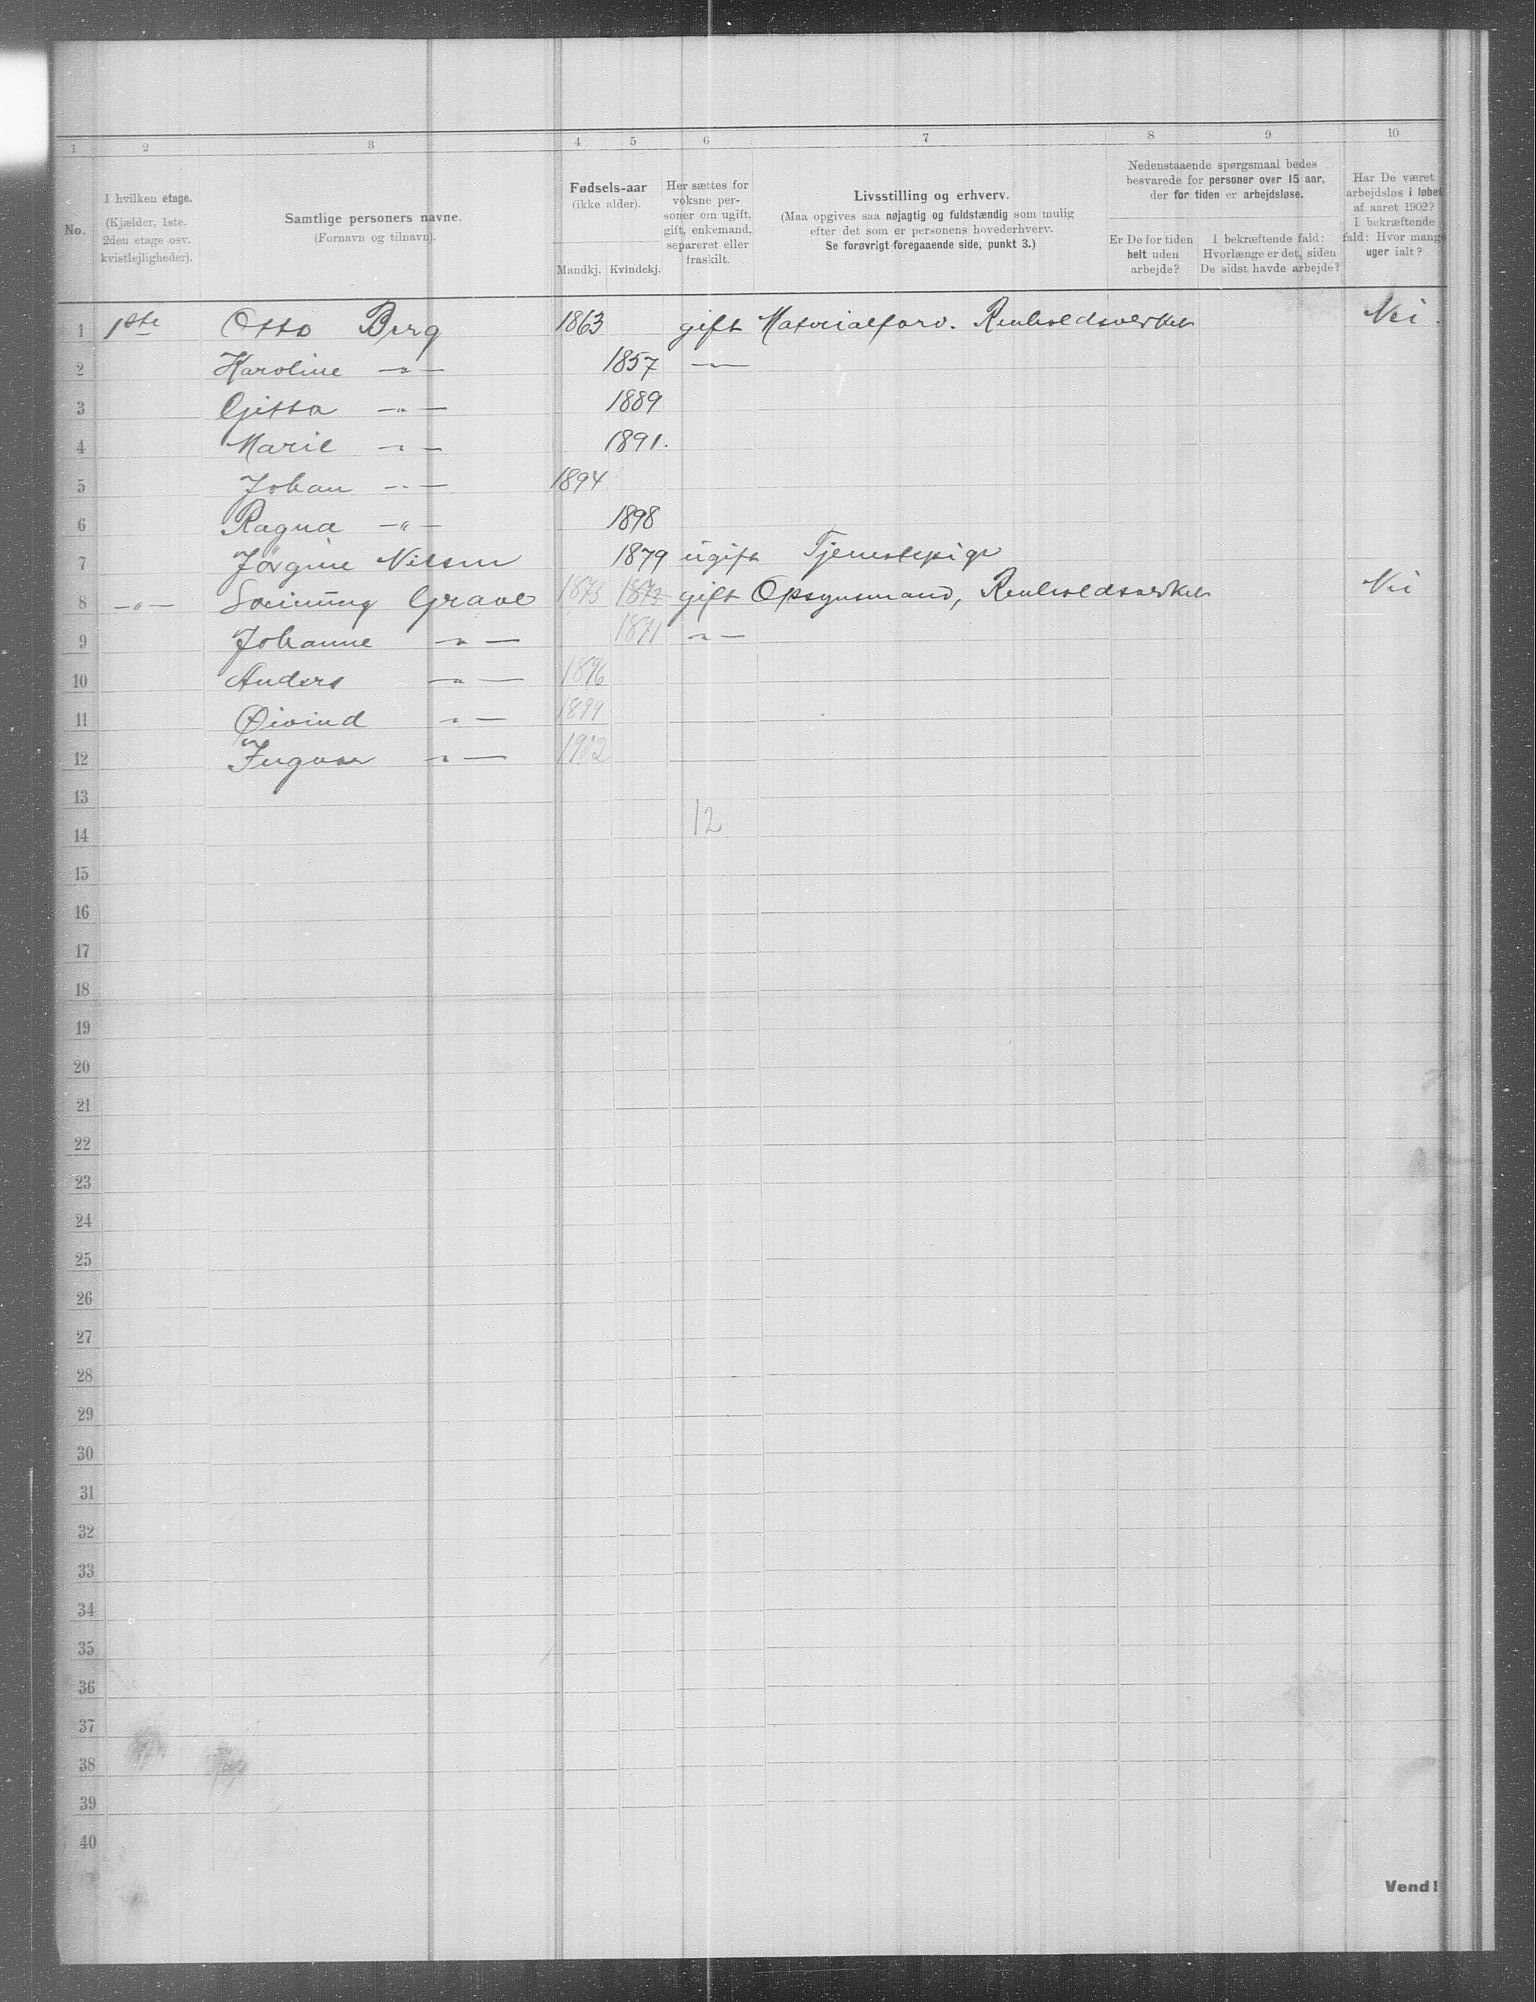 1 2 3 4 5 6 7 8 9 10
No.
I hvilken etage.
(Kjælder, 1ste.
2den etage osv.
kvistlejligheder).
Samtlige personers navne.
(Fornavn og tilnavn).
Fødsels-aar
(ikke alder).
Mandkj. Kvindekj.
Her sættes for
voksne per-
soner om ugift,
gift, enkemand,
separeret eller
fraskilt.
Livsstilling og erhverv.
(Maa opgives saa nøjagtig og fuldstændig som mulig
efter det som er personens hovederhverv.
Se forøvrigt foregaaende side, punkt 3.)
Nedenstaaende spørgsmaal bedes
besvarede for personer over 15 aar,
der for tiden er arbejdsløse.
Er De for tiden
helt uden
arbejde?
I bekræftende fald:
Hvorlænge er det, siden
De sidst havde arbejde?
Har De været
arbejdsløs i løbet
af aaret 1902?
I bekræftende
fald: Hvor mange
uger ialt?
1 1ste Otto Berg 1863 gift Materialforv. Renholdsverket Nei.
2 Karoline —„— 1857 —„—
3 Gitta —„— 1889
4 Marie —„— 1891.
5 Johan —„— 1894
6 Ragna —„— 1898
7 Jørgine Nilsen 1879 ugift Tjenestepige
8 —„— Grave 1873 1873 gift Opsynsmand, Renholdsverket Nei
9 Johanne —„— 1871 —„—
10 Anders —„— 1896
11 Øivind —„— 1899
12 Ingvar —„— 1902
13
14 12
15
16
17
18
19
20
21
22
23
24
25
26
27
28
29
30
31
32
33
34
35
36
37
38
39
40
Vend!